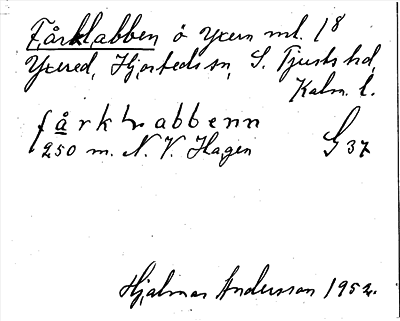 Fårklabben ö Yxern ml. 1⁸
Yxered, Hjorteds sn, S. Tjusts hd,
Kalm. l.
fårkłabbenn
250 m. N. V. Hagen G 37
Hjalmar Andersson 1952.